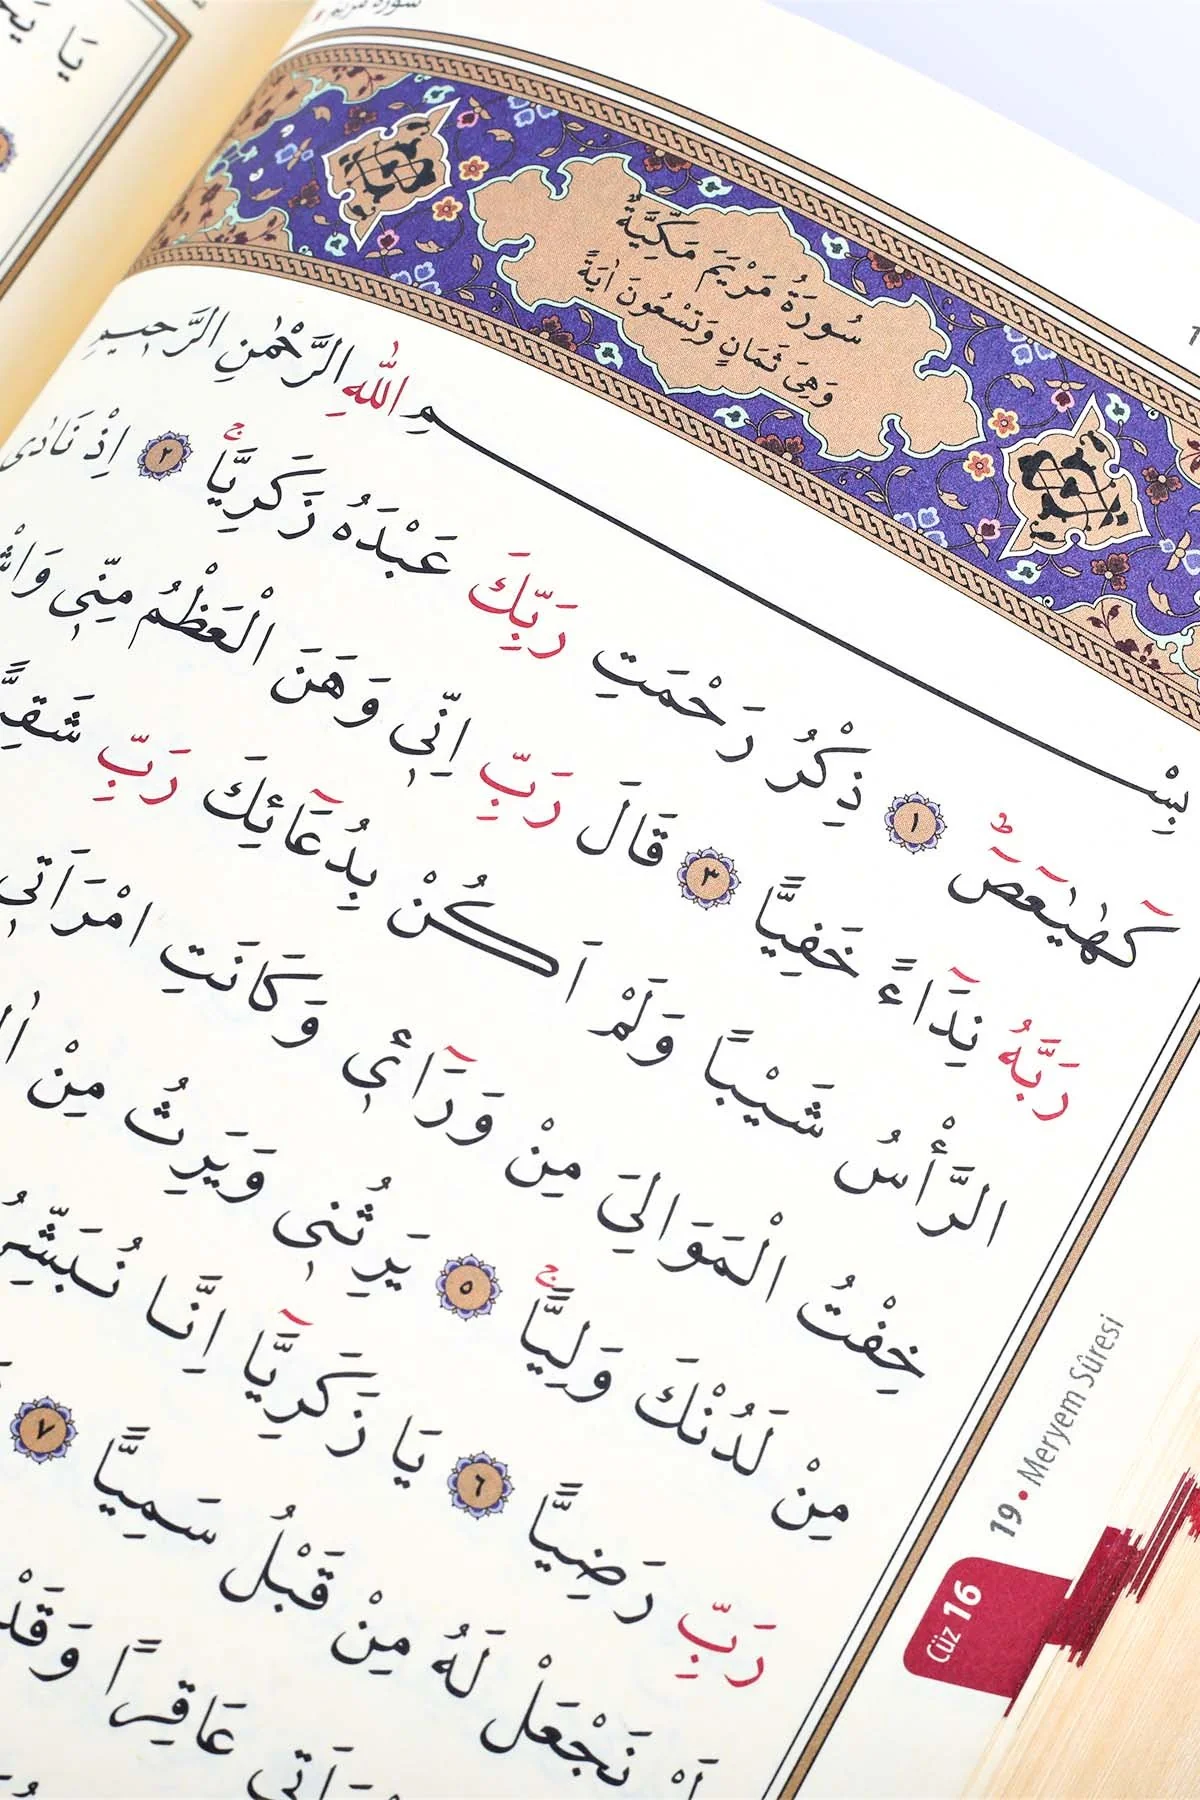 سورة مريم
سُورَةُ مَرْيَمَ مَكِّيَّةٌ
وَهِيَ ثَمَانٍ وَتِسْعُونَ اٰيَةً
بِسْمِ اللّٰهِ الرَّحْمٰنِ الرَّحِيمِ
كٓهٰيٰعٓصٓ ۜ ﴿١﴾ ذِكْرُ رَحْمَتِ رَبِّكَ عَبْدَهُ زَكَرِيَّاۚ ﴿٢﴾ اِذْ نَادٰى
رَبَّهُ نِدَٓاءً خَفِيًّا ﴿٣﴾ قَالَ رَبِّ اِنّ۪ي وَهَنَ الْعَظْمُ مِنّ۪ي
الرَّأْسُ شَيْبًا وَلَمْ اَكُنْ بِدُعَٓائِكَ رَبِّ
خِفْتُ الْمَوَالِيَ مِنْ وَرَٓاء۪ي وَكَانَتِ امْرَاَت۪ي
مِنْ لَدُنْكَ وَلِيًّاۚ ﴿٥﴾ يَرِثُن۪ي وَيَرِثُ مِنْ
رَبِّ رَضِيًّا ﴿٦﴾ يَا زَكَرِيَّٓا اِنَّا
نَجْعَلْ لَهُ مِنْ قَبْلُ سَمِيًّا ﴿٧﴾
عَاقِرًا وَقَدْ
19 • Meryem Sûresi
Cüz 16